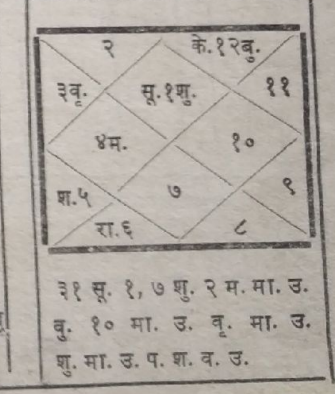 २ के.१२बु.
३वृ. सू.१शु. ११
४म. १०
श.५ ७ ९
रा.६ ८
३१ सू. १, ७ शु. २ म. मा. उ.
वु. १० मा. उ. वृ. मा. उ.
शु. मा. उ. प. श. व. उ.